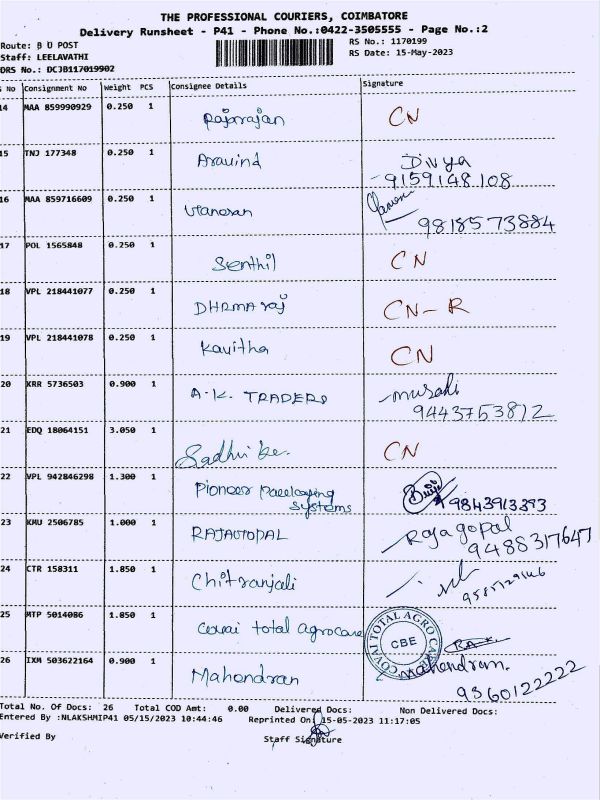 THE PROFESSIONAL COURIERS, COIMBATORE
Delivery Runsheet - P41 - Phone No.:0422-3505555 - Page No.:2
Route: B U POST
RS No.: 1170199
Staff: LEELAVATHI
RS Date: 15-May-2023
DRS No.: DCJB117019902
S No Consignment No Weight PCS Consignee Details Signature
14 MAA 859990929 0.250 1 Rajarajan CN
15 TNJ 177348 0.250 1 Aravind Divya
9159148108
16 MAA 859716609 0.250 1
9818573884
17 POL 1565848 0.250 1 Senthil CN
18 VPL 218441077 0.250 1 DHRMA raj CN-R
19 VPL 218441078 0.250 1 Kavitha CN
20 KRR 5736503 0.900 1 A.K. TRADERS
9443753812
21 EDQ 18064151 3.050 1 CN
22 VPL 942846298 1.300 1 Pioneer
systems 9843913393
23 KMU 2506785 1.000 1 RAJAGOPAL Rajagopal
9488317647
24 CTR 158311 1.850 1 Chitranjali
25 MTP 5014086 1.850 1 covai total agrocare COVAI TOTAL AGRO CARE
CBE
26 IXM 503622164 0.900 1 Mahendran Mahendran.
9360122222
Total No. Of Docs: 26 Total COD Amt: 0.00 Delivered Docs: Non Delivered Docs:
Entered By :NLAKSHMIP41 05/15/2023 10:44:46 Reprinted On: 15-05-2023 11:17:05
Verified By Staff Signature